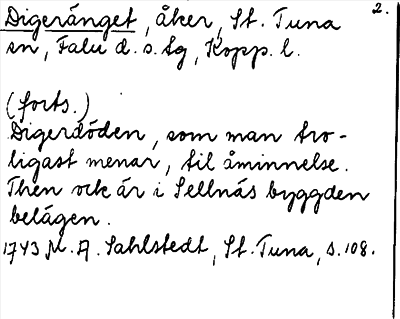 Digeränget, åker, St. Tuna 2.
sn, Falu d. s. tg, Kopp. l.
(forts.)
Digerdöden, som man tro-
ligast menar, til åminnelse.
Then ock är i Sellnäs byggden
belägen.
1743 M. A. Sahlstedt, St. Tuna, s. 108.